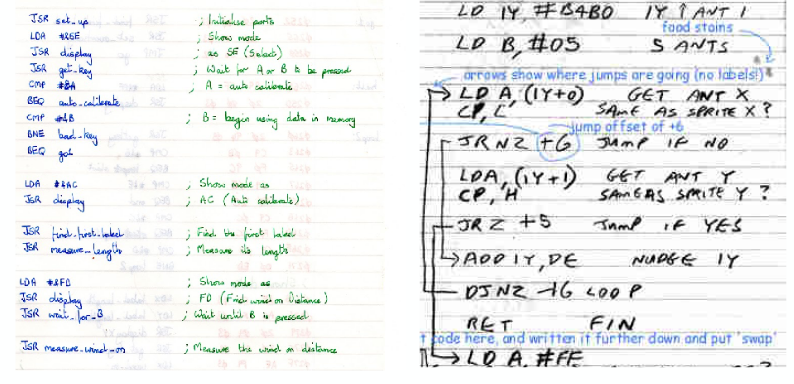 JSR set_up ; Initialise ports
LDA #&SE ; Show mode
JSR display ; as SE (Select)
JSR get_key ; Wait for A or B to be pressed
CMP #&A ; A = auto calibrate
BEQ auto_calibrate
CMP #&B ; B = begin using data in memory
BNE bad_key
BEQ go1
LDA #&AC ; Show mode as
JSR display ; AC (Auto calibrate)
JSR find_first_label ; Find the first label
JSR measure_length ; Measure its length
LDA #&FD ; Show mode as
JSR display ; FD (Find wind on Distance)
JSR wait_for_B ; Wait until B is pressed
JSR measure_wind_on ; Measure the wind on distance
LD IY, #B4B0 IY ↑ ANT 1
food stains
LD B, #05 5 ANTS
arrows show where jumps are going (no labels!)
LD A, (IY+0) GET ANT X
CP, L SAME AS SPRITE X?
jump offset of +6
JR NZ +6 JUMP IF NO
LDA, (IY+1) GET ANT Y
CP, H SAME AS SPRITE Y?
JR Z +5 JUMP IF YES
ADD IY, DE NUDGE IY
DJNZ -16 LOOP
RET FIN
t code here, and written it further down and put 'swap'
LD A, #FF